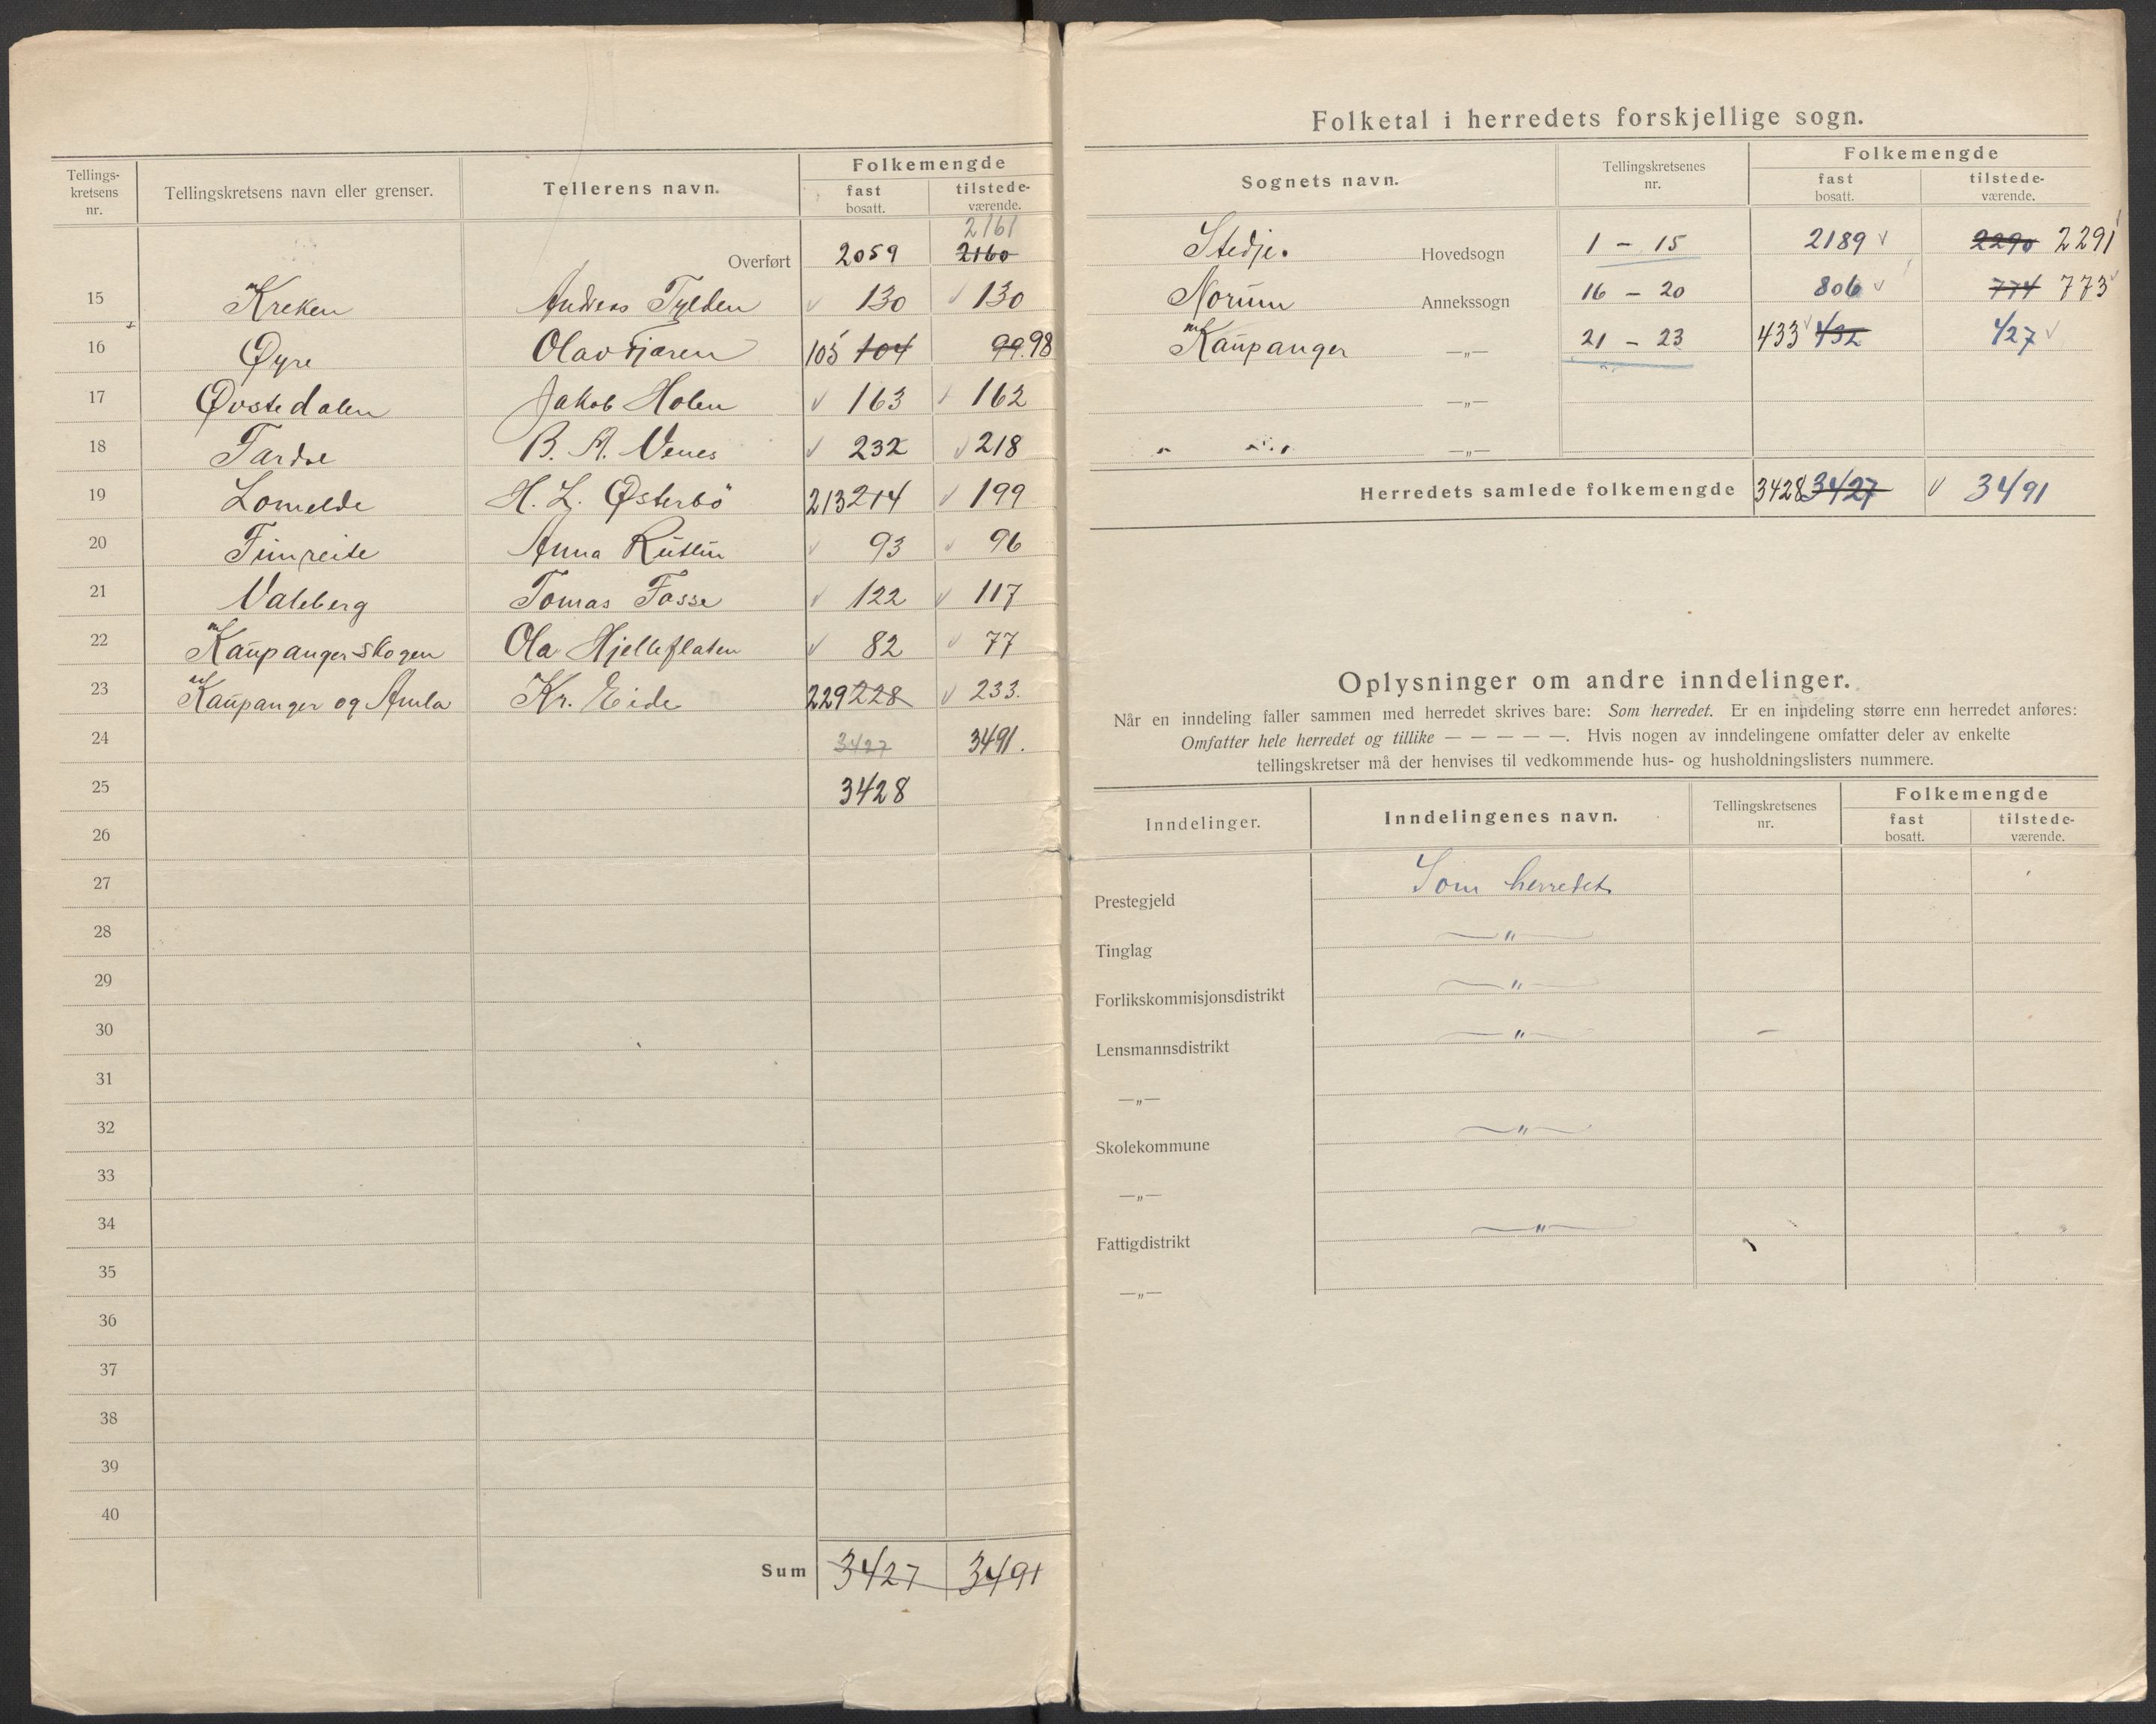 Tellings-kretsens nr. Tellingskretsens navn eller grenser. Tellerens navn. Folkemengde fast bosatt. tilstede-værende.
2161
Overført 2059 2160
15 Kreken Andreas Tylden 130 130
16 Øyre Olav Fjæren 105 104 99 98
17 Øvstedalen Jakob Holen 163 162
18 B. A. Venes 232 218
19 Lomelde H. L. Østerbö 213 214 199
20 Fimreite Anna Rutlin 93 96
21 Valeberg Tomas Fosse 122 117
22 Kaupangerskogen Ola Hjelleflaten 82 77
23 Kaupanger og Amla Kr. Eide 229 228 233.
24 3427 3491.
25 3428
26
27
28
29
30
31
32
33
34
35
36
37
38
39
40
Sum 3427 3491
Folketal i herredets forskjellige sogn.
Sognets navn. Tellingskretsenes nr. Folkemengde fast bosatt. tilstede-værende.
Stedje. Hovedsogn 1 - 15 2189 2290 2291
Norum Annekssogn 16 - 20 806 774 773
Kaupanger —„— 21 - 23 433 432 427
—„—
—„—
Herredets samlede folkemengde 3428 3427 3491
Oplysninger om andre inndelinger.
Når en inndeling faller sammen med herredet skrives bare: Som herredet. Er en inndeling større enn herredet anføres:
Omfatter hele herredet og tillike — — — — —. Hvis nogen av inndelingene omfatter deler av enkelte
tellingskretser må der henvises til vedkommende hus- og husholdningslisters nummere.
Inndelinger. Inndelingenes navn. Tellingskretsenes nr. Folkemengde fast bosatt. tilstede-værende.
Prestegjeld Som herredet
Tinglag —„—
Forlikskommisjonsdistrikt —„—
Lensmannsdistrikt —„— –
—„—
Skolekommune —„—
—„—
Fattigdistrikt —„—
—„—